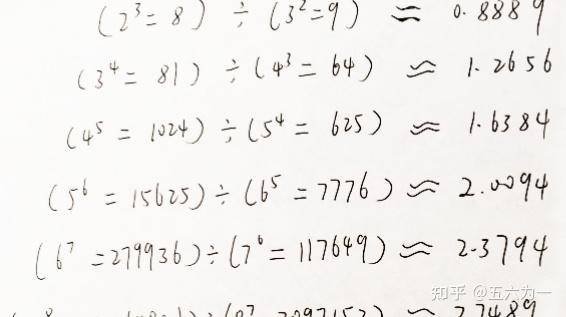 (2³ = 8) ÷ (3² = 9) ≈ 0.8889
(3⁴ = 81) ÷ (4³ = 64) ≈ 1.2656
(4⁵ = 1024) ÷ (5⁴ = 625) ≈ 1.6384
(5⁶ = 15625) ÷ (6⁵ = 7776) ≈ 2.0094
(6⁷ = 279936) ÷ (7⁶ = 117649) ≈ 2.3794
2097152) ≈ 2.7489
知乎 @五六为一